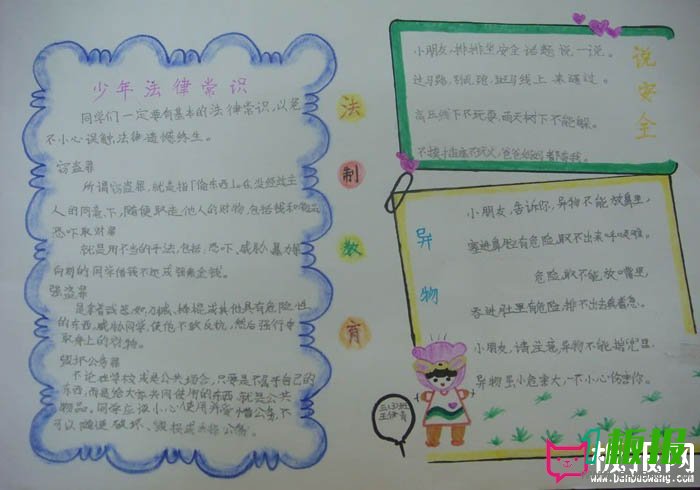 少年法律常识
同学们一定要有基本的法律常识，以免
不小心误触法律遗憾终生。
窃盗罪
所谓窃盗罪，就是指「偷东西」。在没经过主
人的同意下，随便取走他人的财物，包括钱和物品
恐吓取财罪
就是用不当的手法，包括：恐吓、威胁、暴力等
向别的同学借钱不还或强索金钱。
强盗罪
是拿着武器如刀械、棒棍或其他具有危险性
的东西，威胁同学，使他不敢反抗，然后强行夺
取身上的财物。
毁坏公务罪
不论在学校或是公共场合，只要是不属于自己的
东西，而是给大家共同使用的东西，就是公共
物品。同学应该小心使用并爱惜公务，不
可以随便破坏、毁损或丢掉公务。
法
制
教
育
说安全
小朋友，排排坐，安全话题说一说。
过马路，别乱跑，斑马线上来通过。
高压线下不玩耍，雨天树下不能躲。
不摸插座不玩火，爸爸妈妈都夸我。
异
物
小朋友，告诉你，异物不能放鼻里，
塞进鼻腔有危险，取不出来呼吸难。
危险，取不能放嘴里，
吞进肚里有危险，排不出去真着急。
小朋友，请注意，异物不能揣兜里
异物虽小危害大，一不小心伤害你。
板报网
www.banbaowang.com